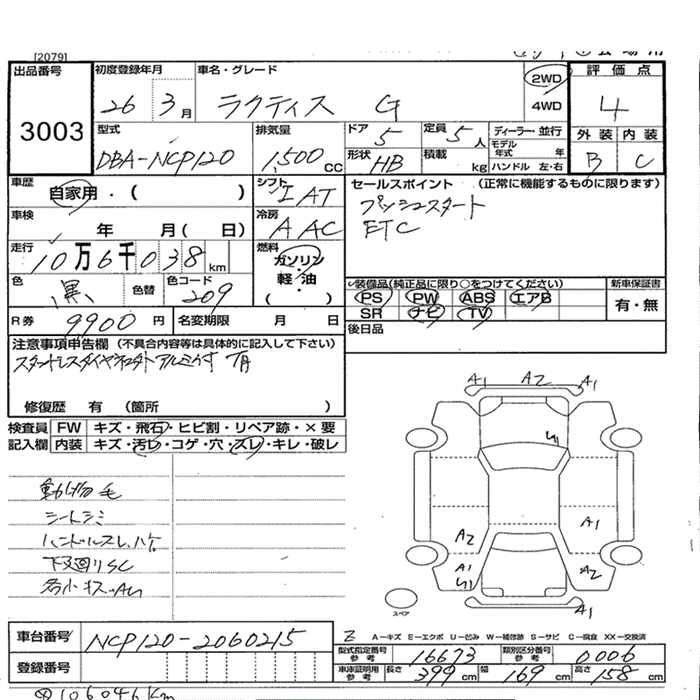 [2079]
出品番号 3003
初度登録年月 26 3月
車名・グレード ラクティス G
2WD 4WD
評価点 4
外装 内装 B C
型式 DBA-NCP120
排気量 1,500 cc
ドア 5
定員 5人
ディーラー・並行
形状 HB
積載 kg
モデル年式 年
ハンドル 左・右
車歴 自家用・( )
シフト I AT
車検 年 月(日)
冷房 A AC
走行 10万6千038km
燃料 ガソリン・軽油 ( )
色 黒 色替
色コード 209
R券 9900円
名変期限 月 日
セールスポイント (正常に機能するものに限ります)
プッシュスタート
ETC
装備品(純正品に限り○をつけてください)
PS PW ABS エアB
SR ナビ TV
新車保証書 有・無
後日品
注意事項申告欄 (不具合内容等は具体的に記入して下さい)
修復歴 有 (箇所 )
検査員記入欄
FW キズ・飛石・ヒビ割・リペア跡・×要
内装 キズ・汚レ・コゲ・穴・スレ・キレ・破レ
動物毛
シートシミ
ハンドルスレ、ハゲ
下廻りSC
A1 A2 A1
U1
A2 A1
A1 U1 A2
A1
スペア
A−キズ E−エクボ U−凹み W−補修跡 S−サビ C−腐食 XX−交換済
車台番号 NCP120-2060215
登録番号
型式指定番号 参考 16673
類別区分番号 参考 0006
車庫証明用 参考 長さ 399cm 幅 169cm 高さ 158cm
106046Km